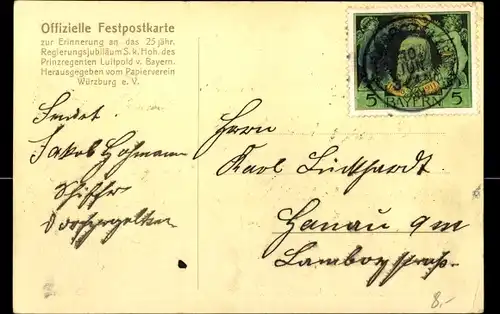 Offizielle Festpostkarte
zur Erinnerung an das 25jähr.
Regierungsjubiläum S. k. Hoh. des
Prinzregenten Luitpold v. Bayern.
Herausgegeben vom Papierverein
Würzburg e. V.
5 BAYERN 5
Sendet
Jakob Hofmann
Schiffer
Herrn
Karl Lückhardt
Hanau a/m
Lamboystraße.
8,-